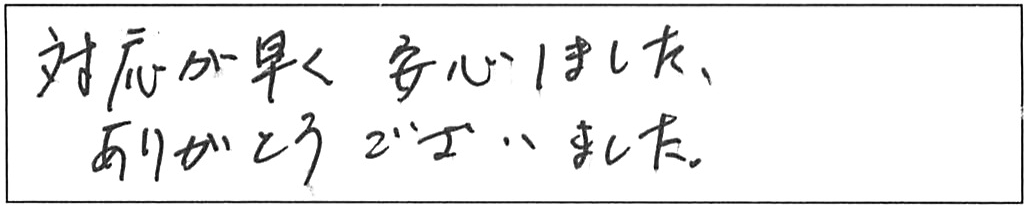 対応が早く 安心しました、
ありがとうございました。